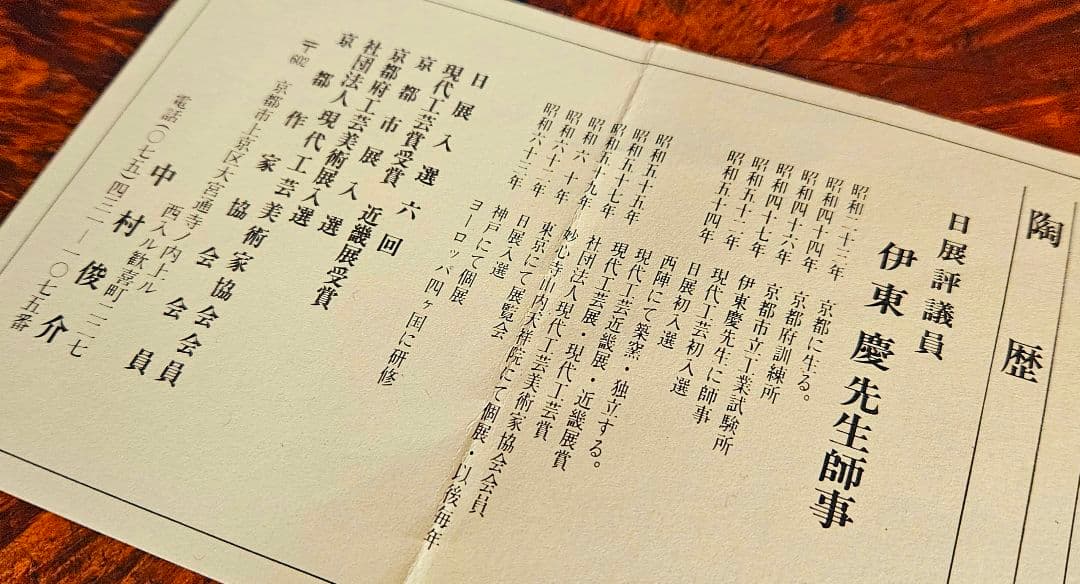 陶歴
日展評議員
伊東慶先生師事
昭和二十三年 京都に生る。
昭和四十四年 京都府訓練所
昭和四十六年 京都市立工業試験所
昭和四十七年 伊東慶先生に師事
昭和五十二年 現代工芸初入選
昭和五十四年 日展初入選
昭和五十五年 西陣にて築窯・独立する。
昭和五十五年 現代工芸近畿展・近畿展賞
昭和五十七年 現代工芸展・現代工芸賞
昭和五十九年 社団法人現代工芸美術家協会会員
昭和六十年 妙心寺山内天祥院にて個展・以後毎年
昭和六十二年 東京にて展覧会
昭和六十三年 日展入選
神戸にて個展
ヨーロッパ四ヶ国に研修
日展入選六回
現代工芸賞受賞 近畿展受賞
京都市展入選
京都府工芸美術展入選
社団法人現代工芸美術家協会会員
京都作家協会会員
〒602 京都市上京区大宮通寺ノ内上ル
西入ル歓喜町二二七
中村俊介
電話(〇七五)四三一-一〇七五番